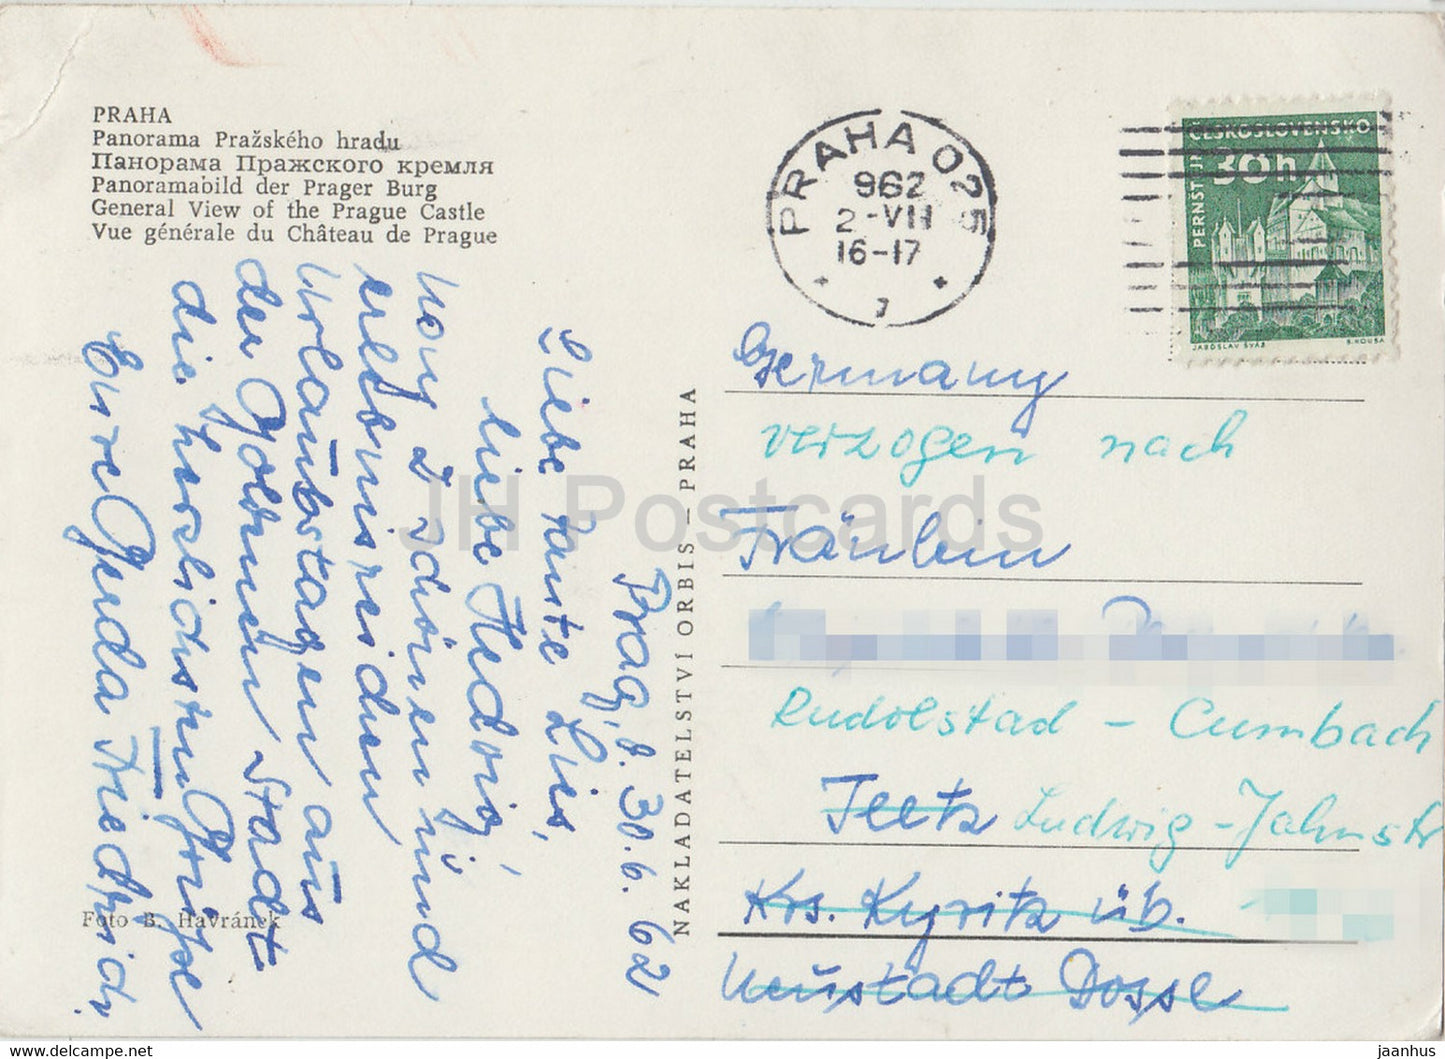 PRAHA
Panorama Pražského hradu
Панорама Пражского кремля
Panoramabild der Prager Burg
General View of the Prague Castle
Vue générale du Château de Prague
Prag, d. 30.6.62
Liebe Tante Lis,
liebe Hedwig,
von 2 schönen und
erlebnisreichen
Urlaubstagen aus
der Goldnen Stadt
die herzlichsten Grüße
Eure Gerda Friedrich
Foto B. Havránek
NAKLADATELSTVÍ ORBIS – PRAHA
PRAHA 025
962
2-VII
16-17
1
ČESKOSLOVENSKO
30h
PERNŠTEJN
JAROSLAV ŠVÁB
Germany
verzogen nach
Fräulein
Rudolstad - Cumbach
Teetz Ludwig-Jahnstr
Krs. Kyritz üb.
Neustadt Dosse
JH Postcards
https://www.delcampe.net
jaanhus